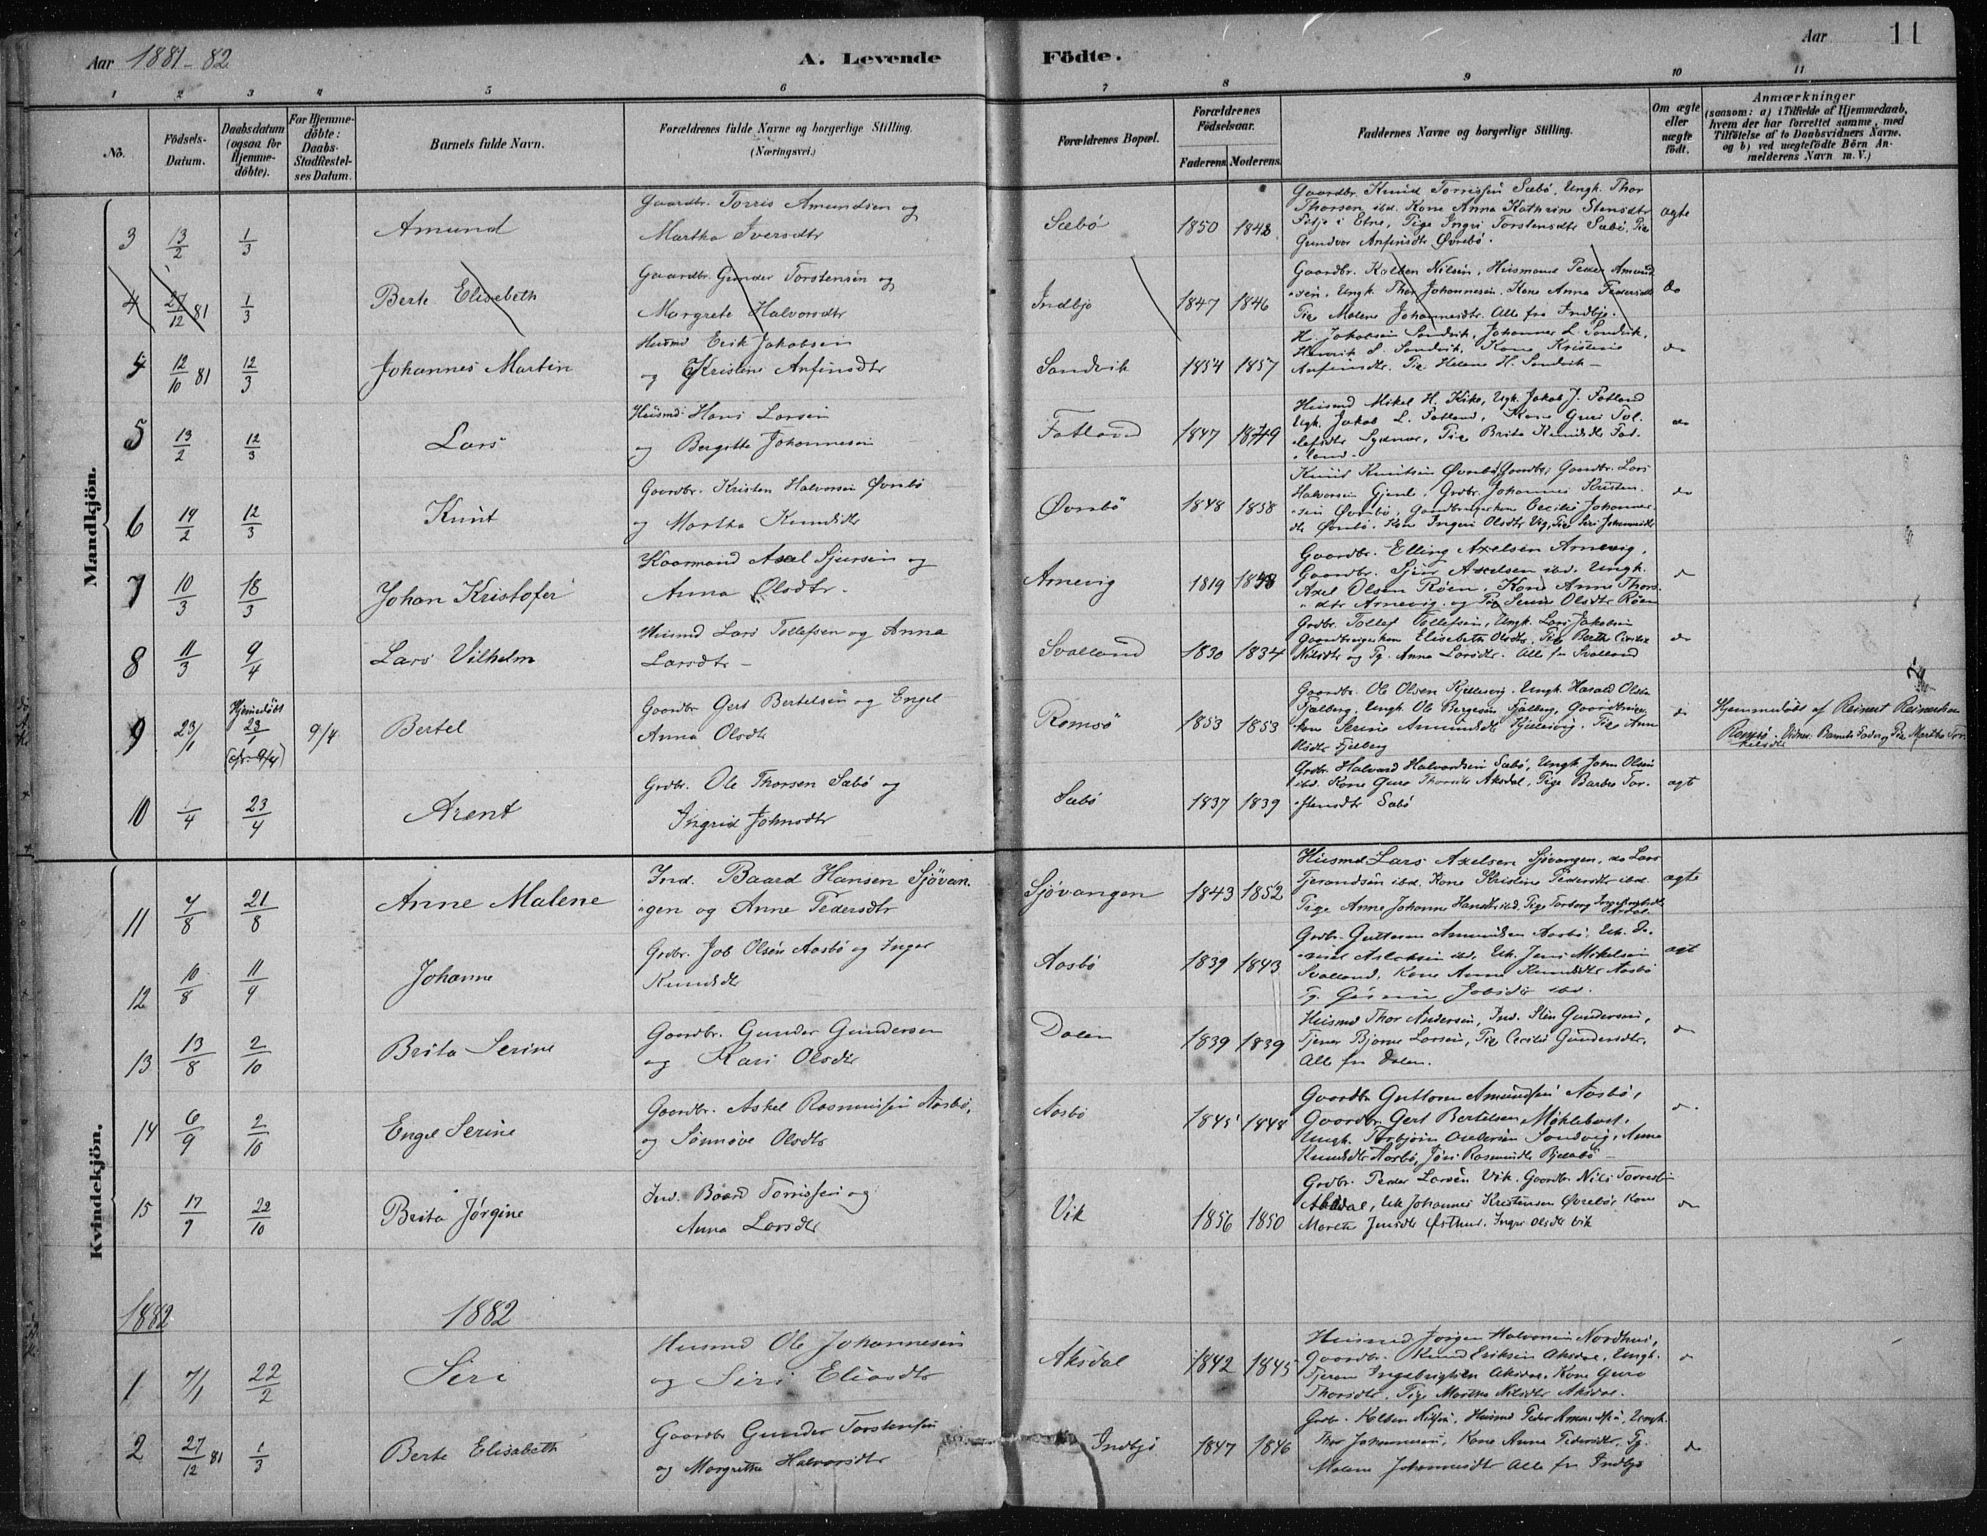 Aar 1881-82
A. Levende
Födte.
Aar
11
1 2 3 4 5 6 7 8 9 10 11
No.
Födsels-
Datum.
Daabsdatum
(ogsaa for
Hjemme-
döbte).
For Hjemme-
döbte:
Daabs-
Stadfæstel-
ses Datum.
Barnets fulde Navn.
Forældrenes fulde Navne og borgerlige Stilling.
(Næringsvei.)
Forældrenes Bopæl.
Forældrenes
Födselsaar.
Faderens. Moderens.
Faddernes Navne og borgerlige Stilling.
Om ægte
eller
uægte
födt.
Anmærkninger
(saasom: a) i Tilfælde af Hjemmedaab,
hvem der har forrettet samme, med
Tilföielse af to Daabsvidners Navne,
og b) ved uægtefödte Börn An-
melderens Navn m. V.)
Mandkjön.
3 13/2 1/3 Amund
Gaardbr. Torris Amundsen og
Martha Iversdtr
Sæbö 1850 1848
Gaardbr. Knud Torrissen Sæbö, Ungk. Thor
Thorsen ibd. Kone Anna Kathrine Stensdtr
Fitje i Etne, Pige Ingri Torstensdtr Sæbö, Pie
Gundvor Anfinsdtr Øvrebö.
ægte
4 27/12 81 1/3 Berte Elisebeth
Gaardbr. Gunder Torstensen og
Margrete Halvorsdtr
Indbjo 1847 1846
Gaardbr. Kolben Nilsen, Husmand Peder Amund
sen, Ungk. Thor Johannesen, Kone Anna Pedersdtr
Pie Malene Johannesdtr. Alle fra Indbjo.
do
4 12/10 81 12/3 Johannes Martin
Husmd Erik Jakobsen
og Kristine Anfinsdtr
Sandvik 1854 1857
H. Jakobsen Sandvik, Johannes L. Sandvik,
Henrik S. Sandvik, Kone Kristine
Anfinsdtr. Pie Helene H. Sandvik
do
5 13/2 12/3 Lars
Husmd Hans Larsen
og Bergitte Johannesen
Fatland 1847 1849
Husmd Mikel H. Kiko, Ugk. Jakob J. Fatland
Ugk. Jakob L. Fatland, Kone Guri Tol-
lefsdtr Sydnæs, Pie Brita Knudsdtr Fat-
land.
do
6 19/2 12/3 Knut
Gaardbr. Kristen Halvorsen Øvrebö
og Martha Knudsdtr
Øvrebö 1848 1858
Knud Knutsen Øvrebö Gaardbr, Gaardbr. Lars
Halvorsen Gjerde, Grdbr. Johannes Kristen
sen Øvrebö, Gaardbrugerkon Cecilie Johannes
dtr Øvrebö. Kone Ingeri Olsdtr Vig, Pie Siri Johannesdtr
do
7 10/3 18/3 Johan Kristofer
Kaarmand Axel Sjursen og
Anna Olsdtr.
Arnevig 1819 1848
Gaardbr. Elling Axelsen Arnevig,
Gaardbr. Sjur Axelsen ibd. Ungk.
Axel Olsen Röen, Kone Anna Thors
dtr Arnevig, og Pie Serine Olsdtr Röen
do
8 11/3 9/4 Lars Vilhelm
Husmd Lars Tollefsen og Anna
Larsdtr
Svalland 1830 1834
Grdbr. Tollef Tollefsen, Ungk. Lars Jakobsen
Gaardbrugerkon Elisebeth Olsdtr, Pige Berta Cecilia
Nilsdtr og Pg. Anna Larsdtr. Alle fr Svalland
do
9 23/1 Hjemmedöbt 23/1 (cfr. 9/4) 9/4 Bertel
Gaardbr Gert Bertelsen og Engel
Anna Olsdtr
Romsö 1853 1853
Gaardbr. Ole Olsen Kjellesvig, Ungk. Harald Olsen
Fjelberg, Ungk. Ole Bergesen Fjelberg, Gaardbruger
kon Serine Amundsdtr Kjellesvig, Pie Anne
Olsdtr Fjelberg
do
Hjemmedöbt af Reinert Reinertsen
Romsö. Vidner Barnets Fader og Pie Martha Tor-
kelsdtr
10 1/4 23/4 Arent
Grdbr. Ole Thorsen Sæbö og
Ingrid Johnsdtr
Sæbö 1837 1839
Grdbr. Halvard Halvardsen Sæbö, Ungk John Olsen
ibd. Kone Guro Thorsdtr Aksdal, Pige Barbro Tor-
stensdtr Sæbö
ægt
Kvindekjön.
11 7/8 21/8 Anne Malene
Ind. Baard Hansen Sjövan-
gen og Anne Pedersdtr
Sjövangen 1843 1852
Husmd Lars Axelsen Sjövangen, do Lars
Tjerandsen ibd. Kone Kristine Pedersdtr ibd.
Pige Anne Johanne Hansdtr ibd. Pige Torborg Ingebrigtsdtr
ægte
12 10/8 11/9 Johanne
Grdbr. Job Olsen Aasbö og Inger
Knudsdtr
Aasbö 1839 1843
Grdbr. Guttorm Amundsen Aasbö, Uk. Da-
niel Aslaksen ibd. Uk. Jens Mikelsen
Svalland, Kone Anna Knudsdtr Aasbö
Pg. Gurine Jobsdtr ibd.
ægt
13 13/8 2/10 Brita Serine
Gaardbr. Gunder Gundersen
og Kari Olsdtr
Dalen 1839 1839
Husmd Thor Andersen, Ind. Sten Gundersen,
Tjener Bjorne Larsen, Pie Cecilie Gundersdtr,
Alle fra Dalen.
do
14 6/9 2/10 Engel Serine
Gaardbr. Askel Rasmussen Aasbö,
og Sönnöve Olsdtr
Aasbö 1845 1848
Gaardbr Guttorm Amundsen Aasbö,
Gaardbr Gert Bertelsen Möklebust,
Ungk. Torbjörn Andersen Sandvig, Anne
Knudsdtr Aasbö, Jöri Rasmusdtr
do
15 17/9 22/10 Brita Jörgine
Ind. Baard Torrissen og
Anna Larsdtr
Vik 1856 1850
Grdbr. Peder Larsen Vik, Gaardbr. Nils Torrest
Aksdal, Uk Johannes Kristensen Øvrebö, Kone
Marta Jensdtr Østhus. Inger Olsdtr Vik
do
1882
1882
1 7/1 22/2 Siri
Husmd Ole Johannesen
og Siri Eliasdtr
Aksdal 1842 1845
Husmd Jörgen Halvorsen Nordhus,
Gaardbr. Knud Eriksen Aksdal, Ungk.
Tjeran Ingebrigtsen Aksdal, Kone Guro
Thorsdtr, Pige Martha Nilsdtr Aksdal.
do
2 27/12 81 1/3 Berte Elisabeth
Gaardbr Gunder Torstensen
og Margrethe Halvorsdtr
Indbjo 1847 1846
Grdbr. Kolben Nilsen, Husmd Peder Amundsen, Ungk.
Thor Johannesen, Kone Anna Pedersdtr, Pg.
Malene Johannesdtr Alle fra Indbjo
do